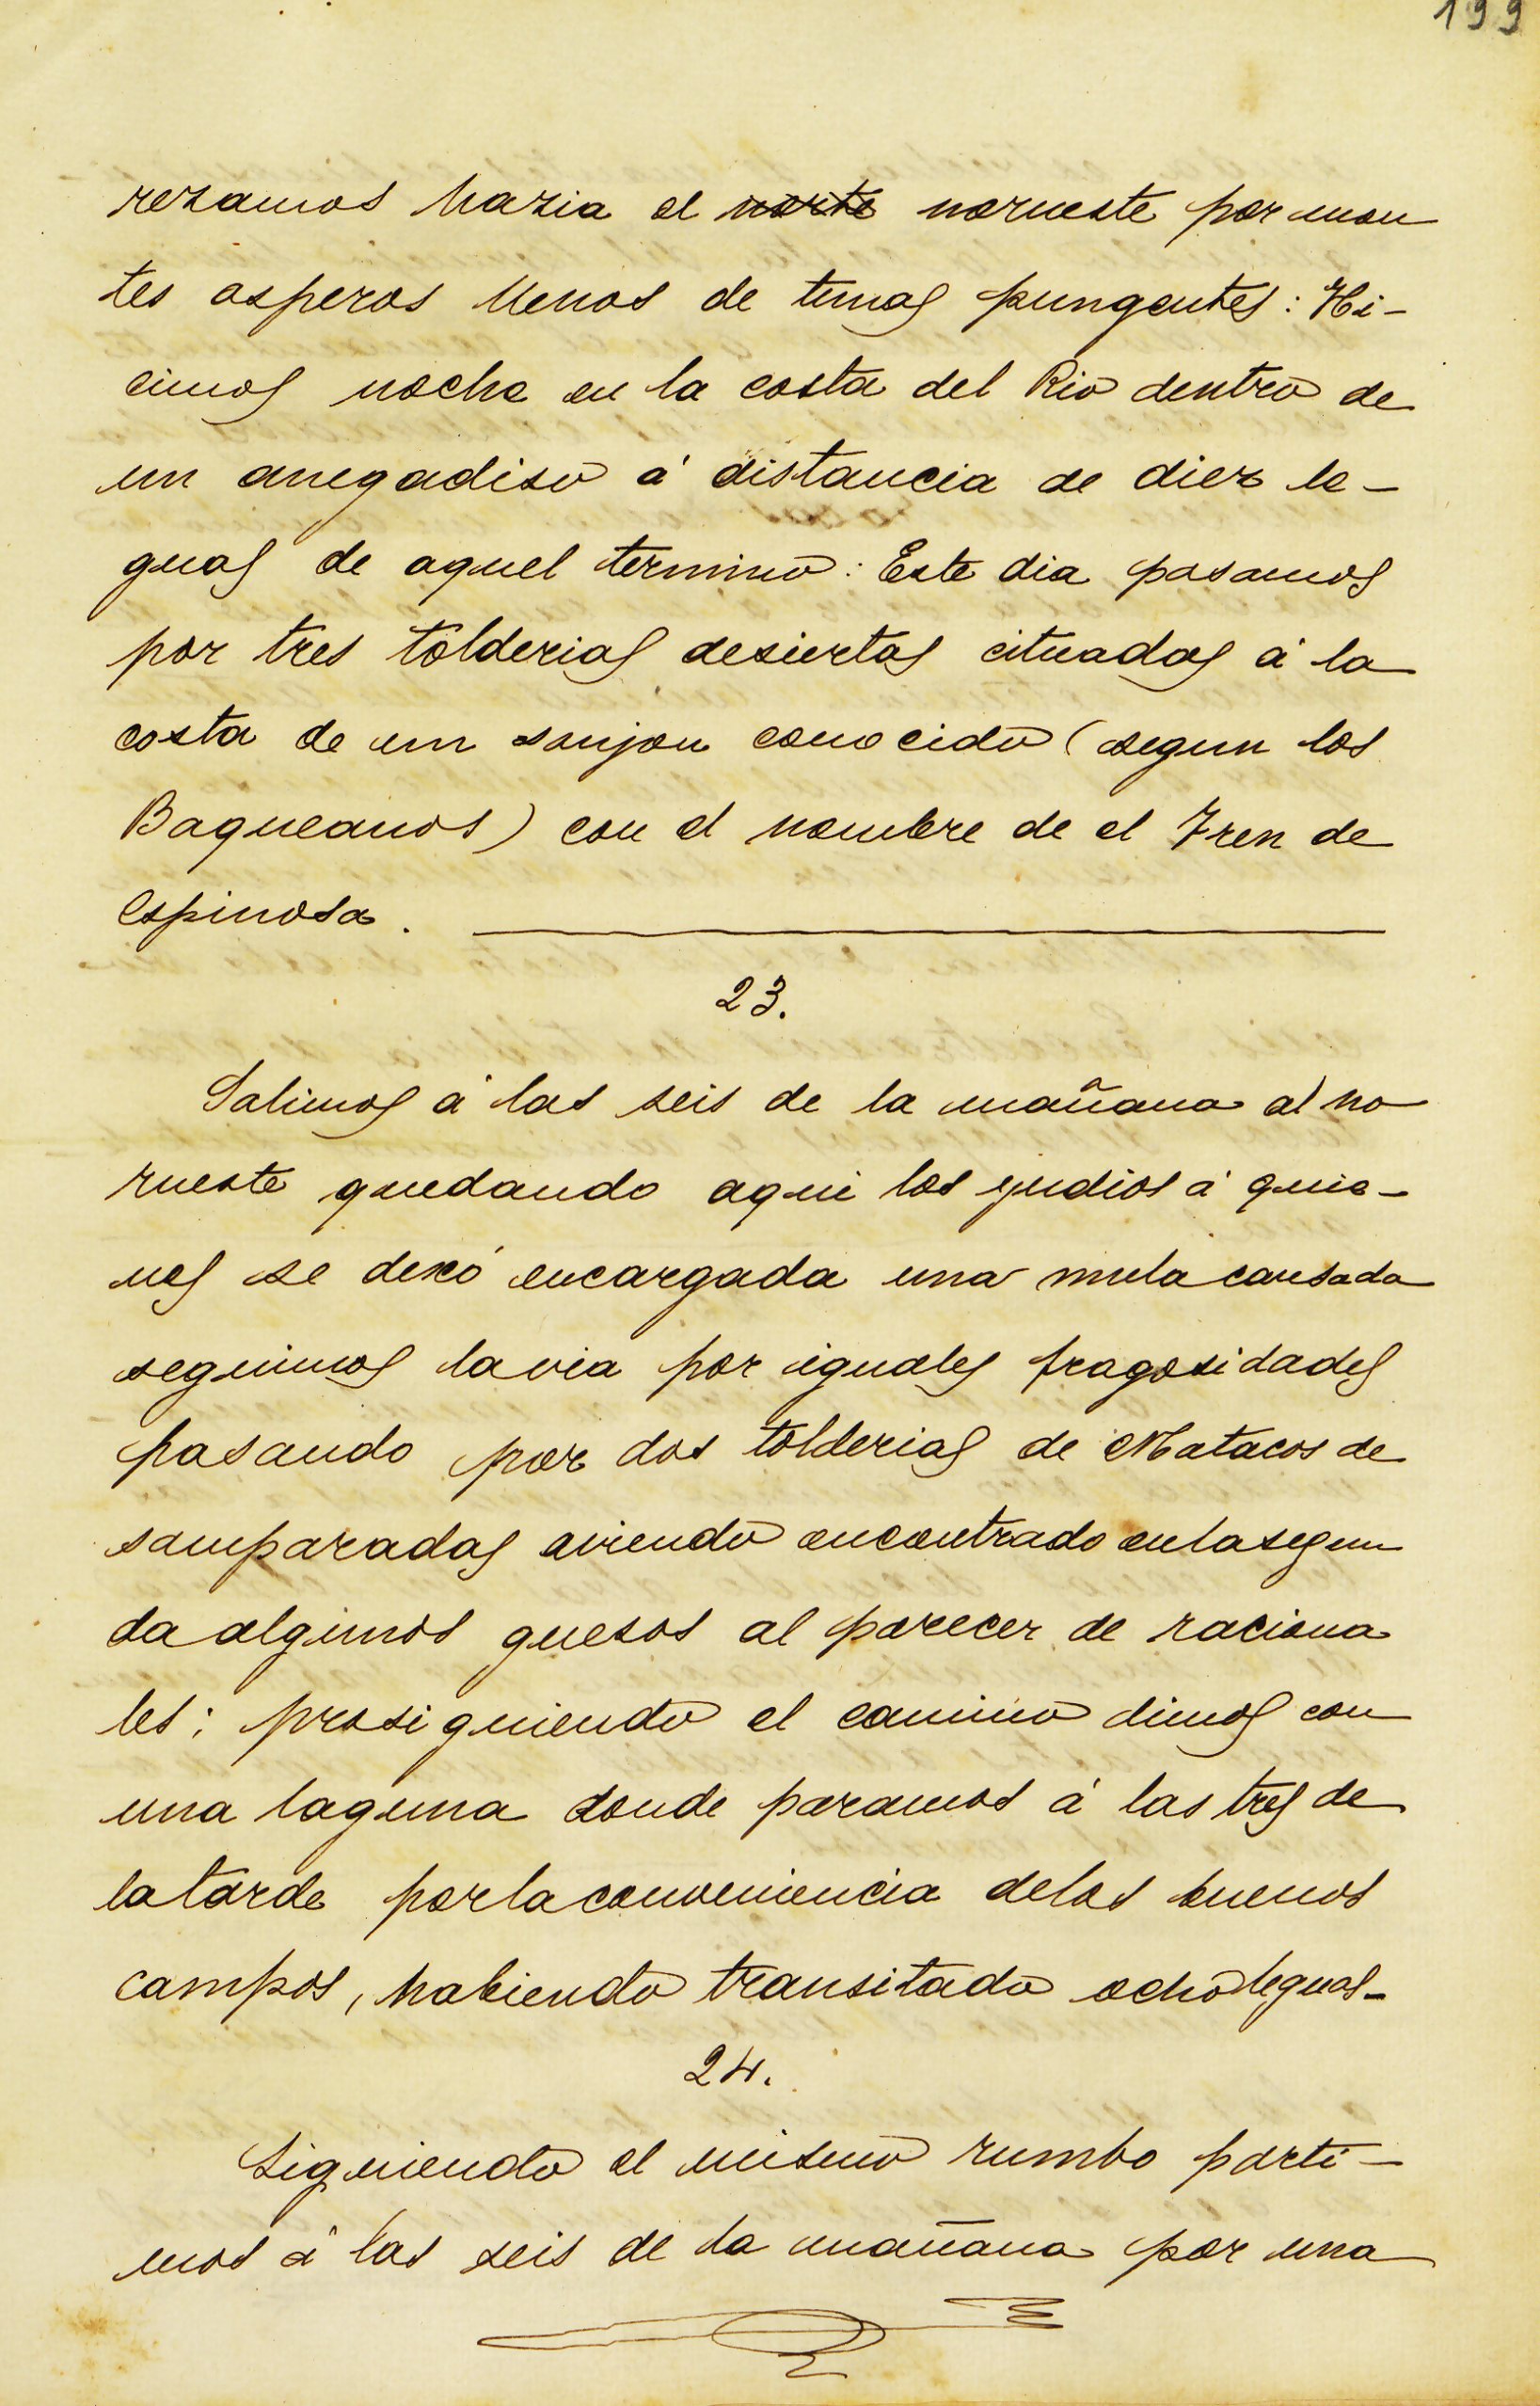 199
rezamos hazia el norte norueste por mon
tes asperos llenos de tunas pungentes: Hi-
cimos noche en la costa del Rio dentro de
un anegadiso á distancia de diez le-
guas de aquel termino: Este dia pasamos
por tres tolderias desiertas cituadas á la
costa de un sanjon conocido (segun los
Baqueanos) con el nombre de el Tren de
espinosa.
23.
Salimos á las seis de la mañana al no
rueste quedando aqui los yudios á quie-
nes se dexó encargada una mula cansada
seguimos la via por iguales fragosidades
pasando por dos tolderias de Matacos de
samparadas aviendo encontrado en la segun
da algunos guesos al parecer de raciona
les; prosiguiendo el camino dimos con
una laguna donde paramos á las tres de
la tarde por la conveniencia delos buenos
campos, habiendo transitado ocho leguas-
24.
Siguiendo el mismo rumbo parti-
mos á las seis de la mañana por una